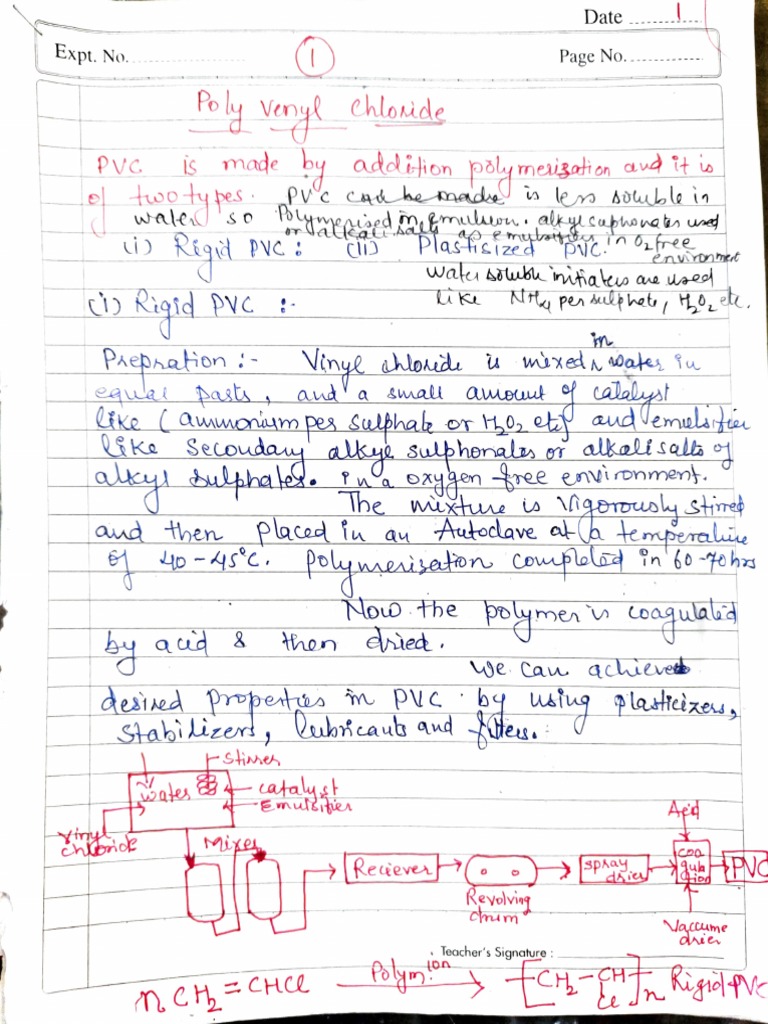 Date 1
Expt. No. 1 Page No.
Poly venyl chloride
PVC is made by addition polymerization and it is
of two types. PVC can be made is less soluble in
water so Polymerised in emulsion. alkyl suphonates used
or alkali salts as emulsifiers in O2 free
environment
(i) Rigid PVC : (ii) Plastisized PVC.
water soluble initiaters are used
like NH4 persulphate, H2O2 etc.
(i) Rigid PVC :-
in
Prepration :- Vinyl chloride is mixed water in
equal parts, and a small amount of catalyst
like (ammonium per sulphate or H2O2 etc) and emulsifier
like secondary alkyl sulphonates or alkali salts of
alkyl sulphates. in a oxygen free environment.
The mixture is vigorously stirred
and then placed in an Autoclave at a temperature
of 40-45°C. polymerization completed in 60-70hrs
Now the polymer is coagulated
by acid & then dried.
We can achieve
desired properties in PVC by using plasticizers,
stabilizers, lubricants and fillers.
stirrer
water
catalyst
Emulsifier
Vinyl
chloride
Mixer
Reciever
Revolving
drum
spray
drier
Acid
coa
gula
tion
PVC
Vaccume
drier
Teacher's Signature :
nCH2=CHCl Polym.ion [CH2-CH]n Rigid PVC
Cl